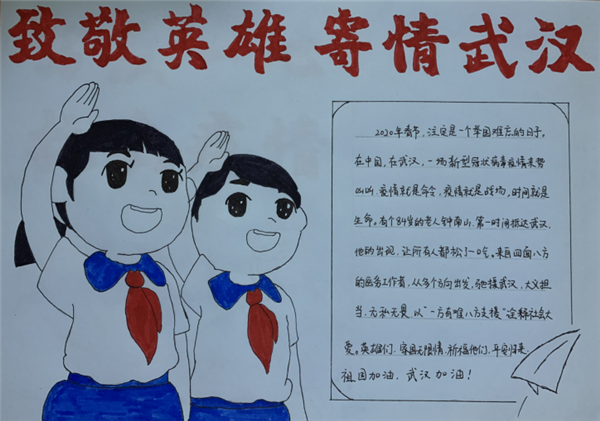 致敬英雄 寄情武汉
2020年春节，注定是一个举国难忘的日子。
在中国，在武汉，一场新型冠状病毒疫情来势
汹汹，疫情就是命令，疫情就是战场，时间就是
生命。有个84岁的老人钟南山，第一时间抵达武汉，
他的出现，让所有人都松了一口气。来自四面八方
的医务工作者，从各个方向出发，驰援武汉，大义担
当，无私无畏，以“一方有难八方支援”诠释社会大
爱。英雄们，家国无惜情，祈福他们，平安归来，
祖国加油，武汉加油！